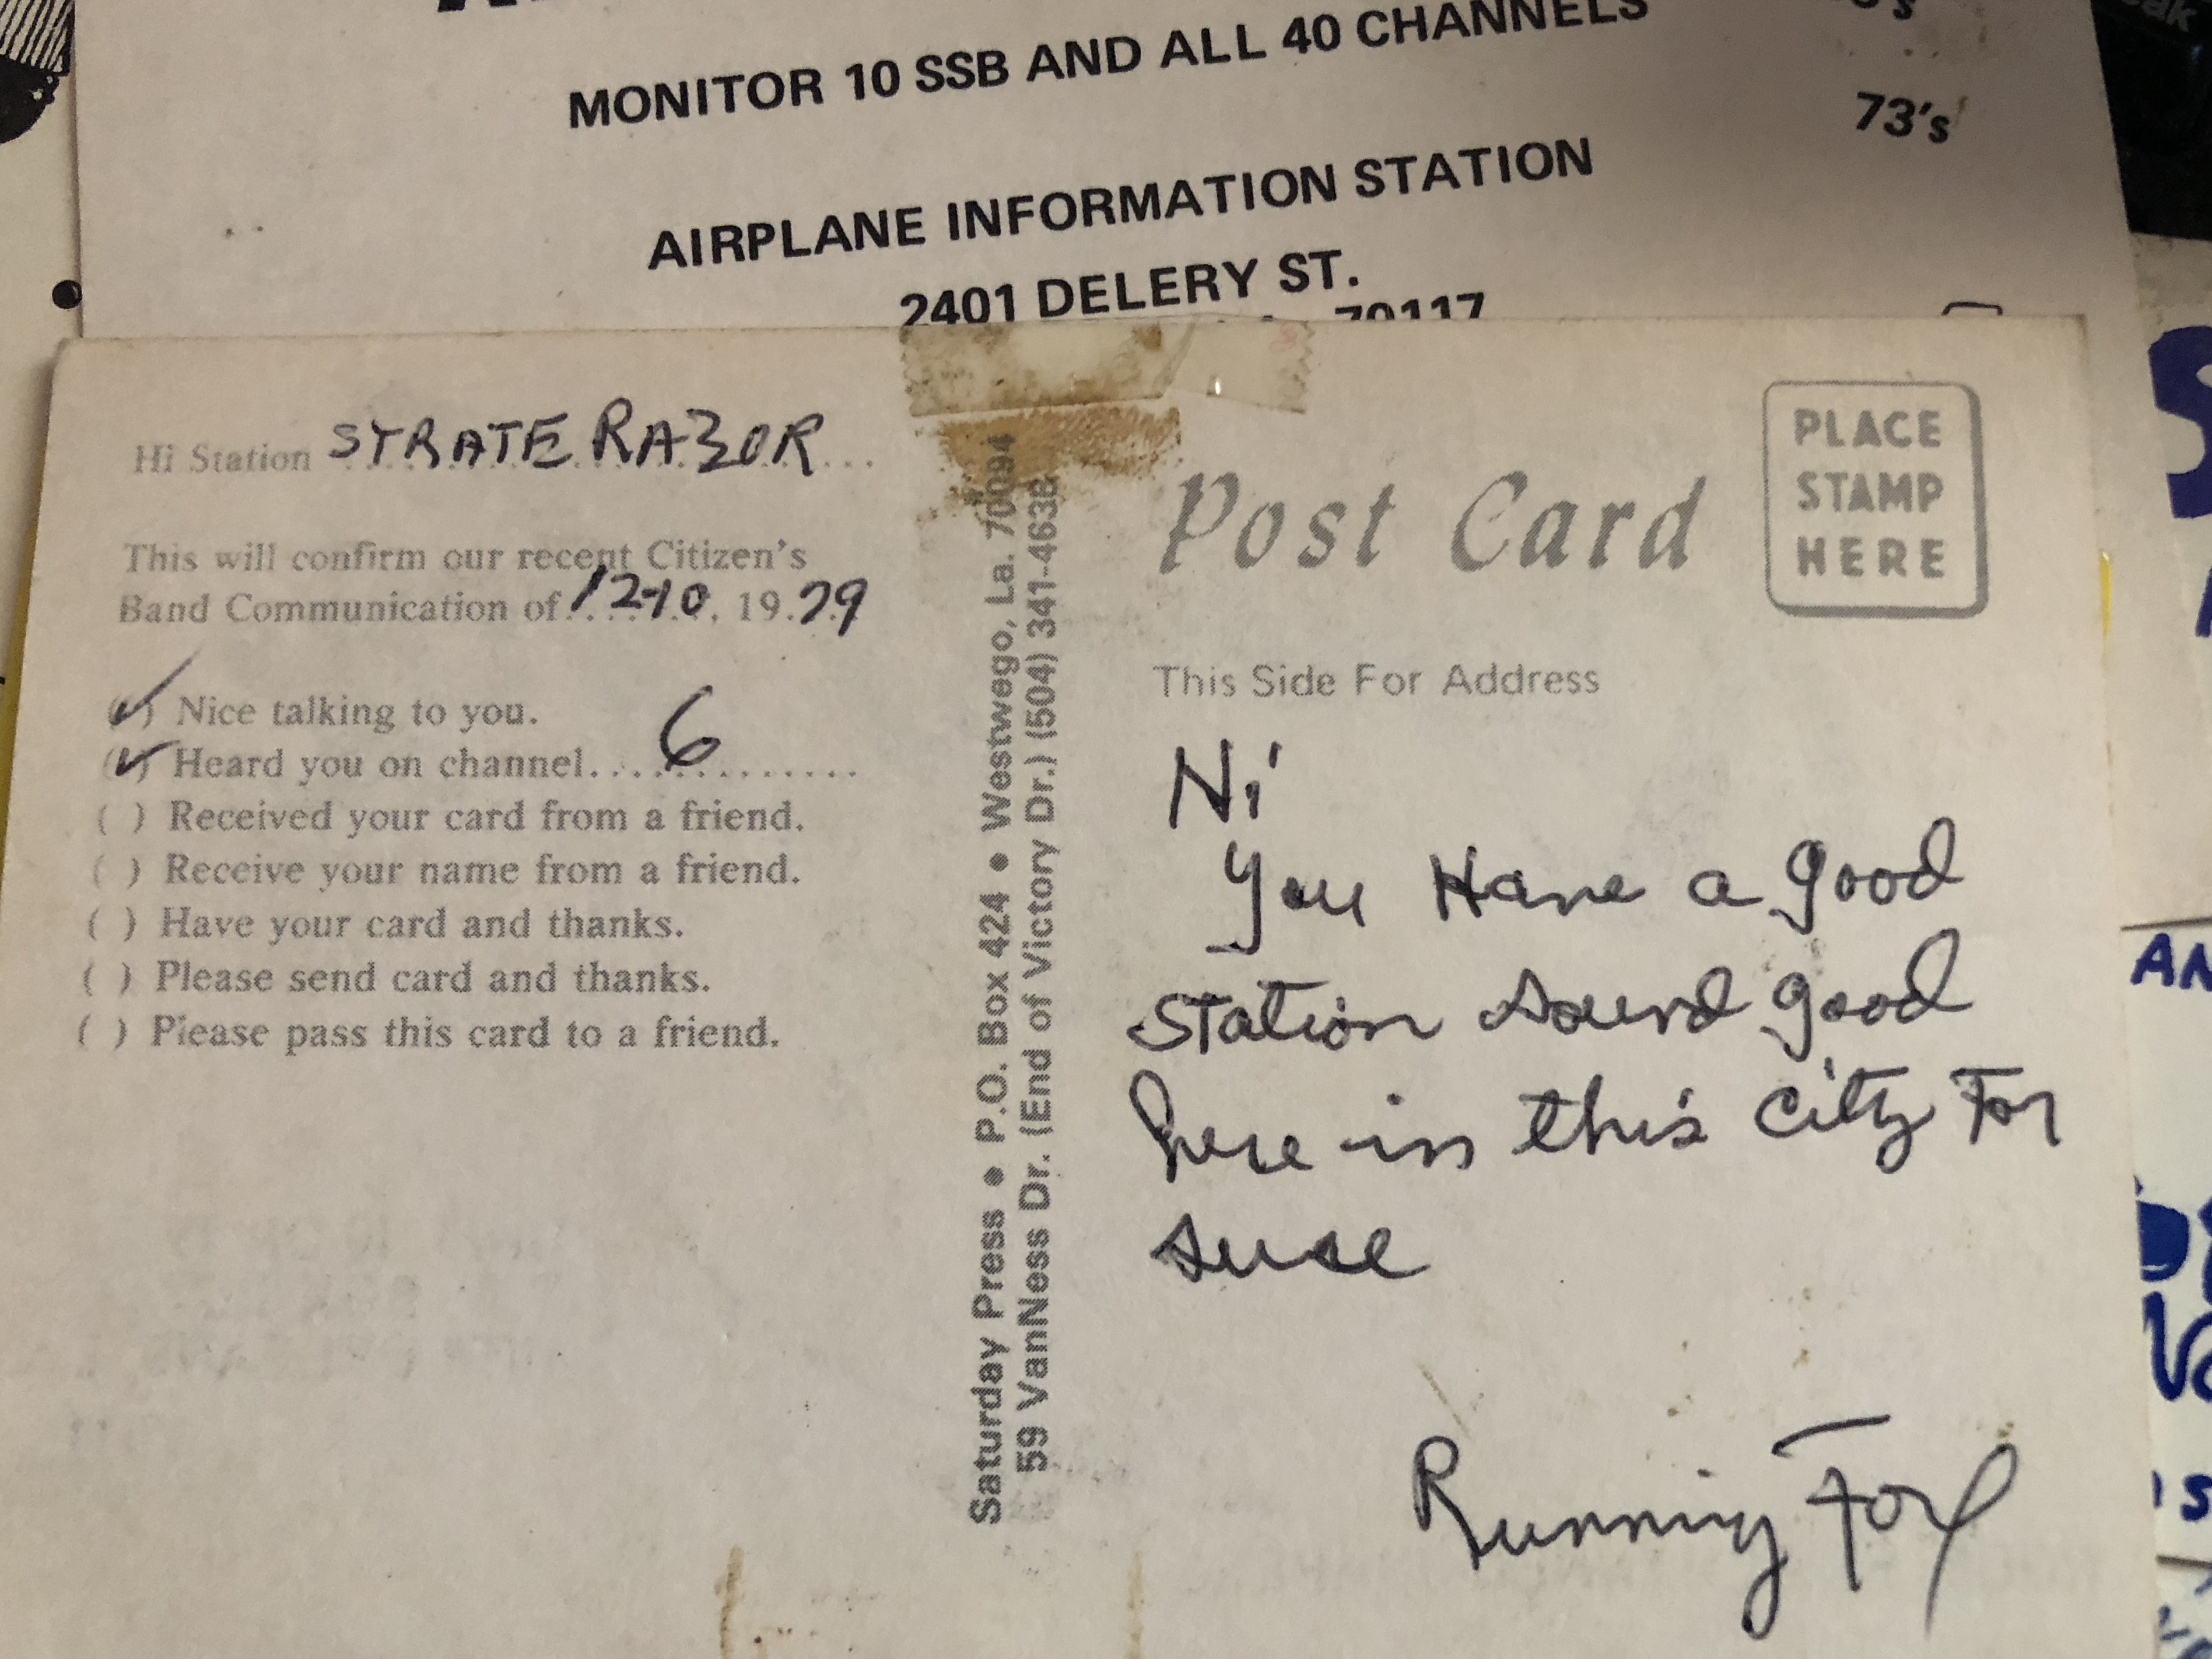 MONITOR 10 SSB AND ALL 40 CHANNELS
73's
AIRPLANE INFORMATION STATION
2401 DELERY ST.
70117
Hi Station STRATE RAZOR
This will confirm our recent Citizen's
Band Communication of 12-10, 19.79
(✓) Nice talking to you.
(✓) Heard you on channel............. 6
( ) Received your card from a friend.
( ) Receive your name from a friend.
( ) Have your card and thanks.
( ) Please send card and thanks.
( ) Please pass this card to a friend.
Saturday Press • P.O. Box 424 • Westwego, La. 70094
59 VanNess Dr. (End of Victory Dr.) (504) 341-4636
Post Card
PLACE
STAMP
HERE
This Side For Address
Hi
you Have a good
station sound good
here in this city For
suse
Running Fox
AN